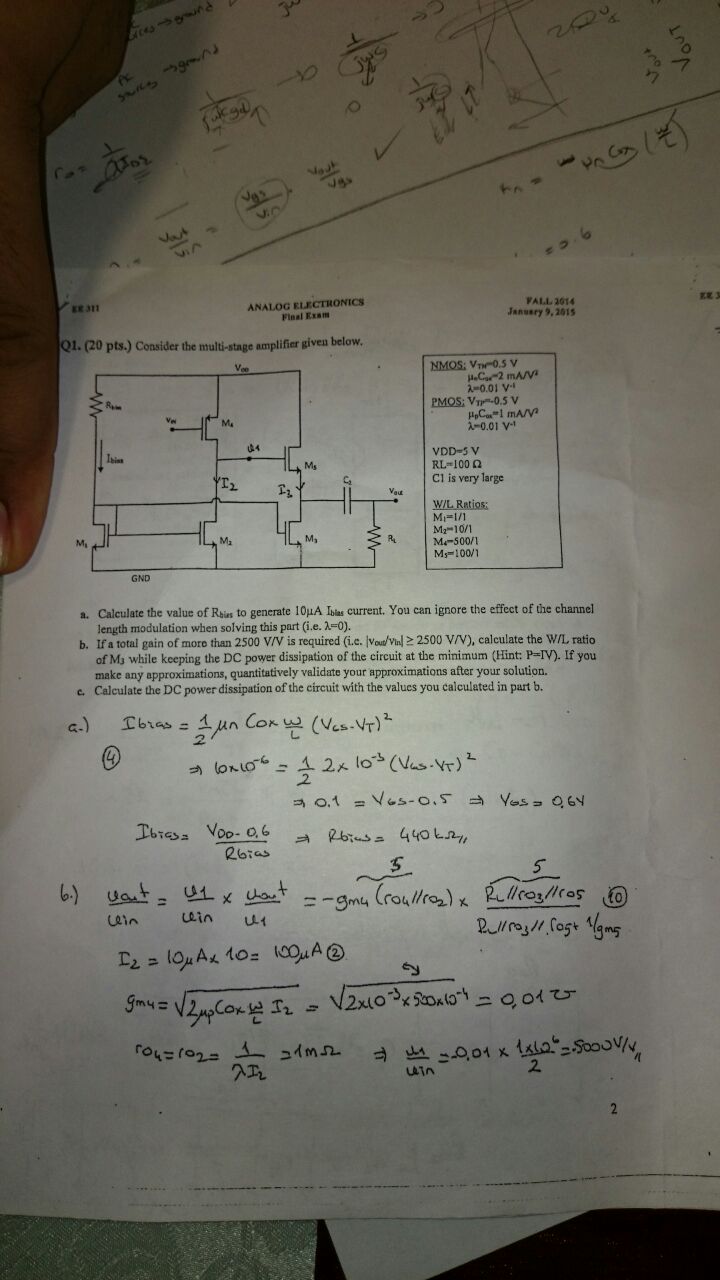 sources → ground
ro = 1/λID2
Vout/Vin = Vgs/Vin · Vout/Vgs ✓
= 0.6
EE 311
ANALOG ELECTRONICS
Final Exam
FALL 2014
January 9, 2015
EE 3
Q1. (20 pts.) Consider the multi-stage amplifier given below.
VDD
Rbias
Ibias
VIN
M4
I2
υ1
M5
I3
C1
Vout
M1
M2
M3
RL
GND
NMOS: VTN=0.5 V
μnCox=2 mA/V²
λ=0.01 V⁻¹
PMOS: VTP=-0.5 V
μpCox=1 mA/V²
λ=0.01 V⁻¹
VDD=5 V
RL=100 Ω
C1 is very large
W/L Ratios:
M1=1/1
M2=10/1
M4=500/1
M5=100/1
a. Calculate the value of Rbias to generate 10μA Ibias current. You can ignore the effect of the channel
length modulation when solving this part (i.e. λ=0).
b. If a total gain of more than 2500 V/V is required (i.e. |Vout/Vin| ≥ 2500 V/V), calculate the W/L ratio
of M3 while keeping the DC power dissipation of the circuit at the minimum (Hint: P=IV). If you
make any approximations, quantitatively validate your approximations after your solution.
c. Calculate the DC power dissipation of the circuit with the values you calculated in part b.
a.) Ibias = 1/2 μn Cox W/L (VGS-VT)²
④ ⇒ 10x10⁻⁶ = 1/2 2x10⁻³ (VGS-VT)²
⇒ 0.1 = VGS-0.5 ⇒ VGS = 0,6V
Ibias = VDD-0,6/Rbias ⇒ Rbias = 440kΩ//
5 5
b.) υout/υin = υ1/υin x υout/υ1 = -gm4 (ro4//ro2) x RL//ro3//ro5/RL//ro3//ro5+1/gm5 ⑩
I2 = 10μA x 10 = 100μA ②
gm4 = √2μpCox W/L I2 = √2x10⁻³x500x10⁻⁴ = 0,01 ℧
ro4=ro2= 1/λI2 = 1MΩ ⇒ υ1/υin = -0,01 x 1x10⁶/2 = -5000V/V//
2